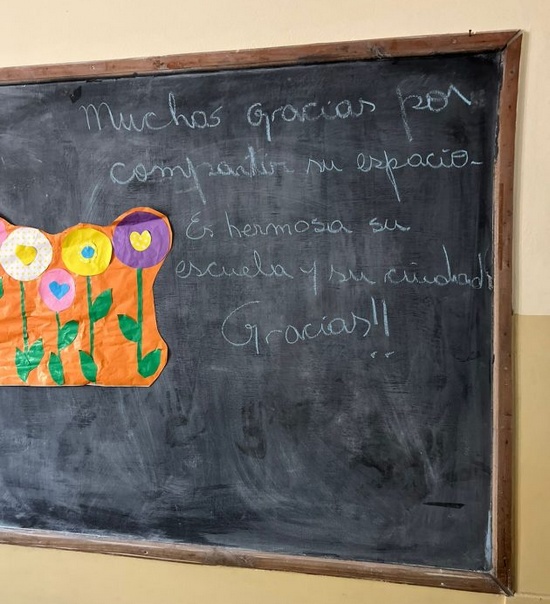 Muchas gracias por
compartir su espacio-
Es hermosa su
escuela y su ciudad
Gracias!!